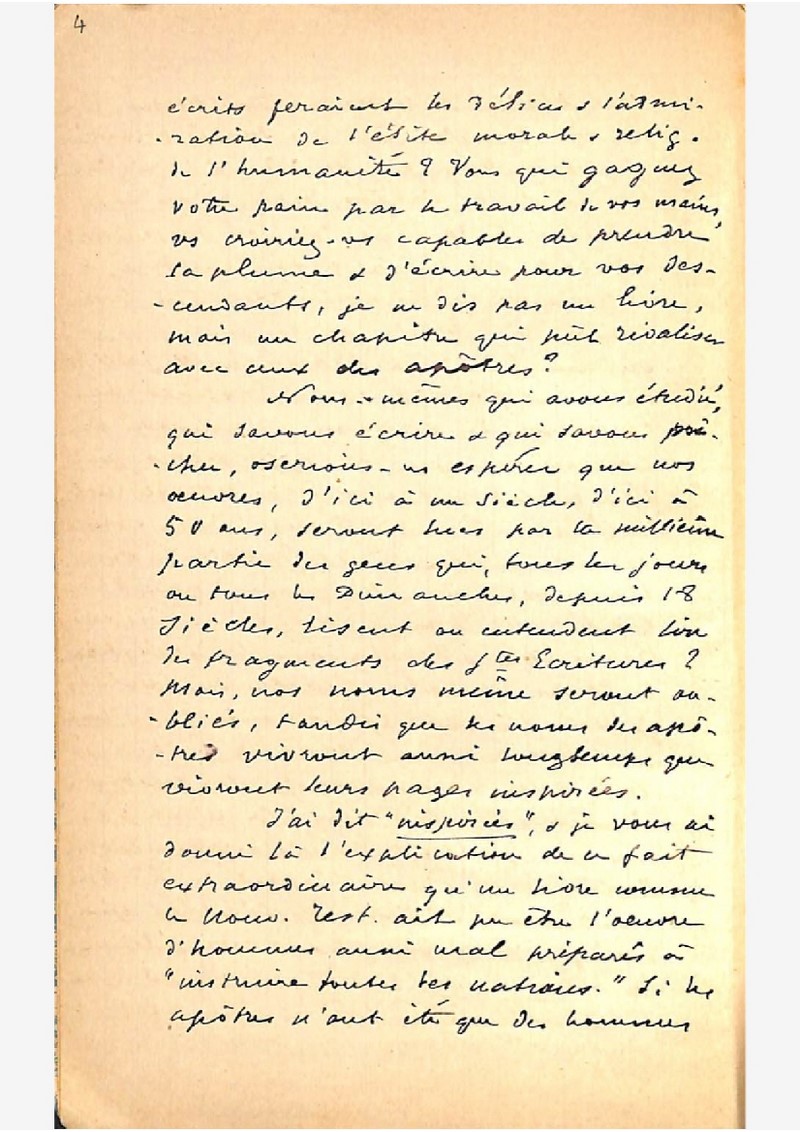 4
écrits feraient les délices & l'admi-
-ration de l'élite morale & relig.
de l'humanité ? Vous qui gagnez
votre pain par le travail de vos mains,
vs croiriez-vs capables de prendre
la plume & d'écrire pour vos des-
-cendants, je ne dis pas un livre,
mais un chapitre qui pût rivaliser
avec ceux des apôtres ?
Nous-mêmes qui avons étudié,
qui savons écrire & qui savons prê-
-cher, oserions-ns espérer que nos
oeuvres, d'ici à un siècle, d'ici à
50 ans, seront lues par la millième
partie des gens qui, tous les jours
ou tous les Dimanches, depuis 18
Siècles, lisent ou entendent lire
des fragments des Stes Ecritures ?
Mais, nos noms même seront ou-
-bliés, tandis que les noms des apô-
-tres vivront aussi longtemps que
vivront leurs pages inspirées.
J'ai dit "inspirées", & je vous ai
donné là l'explication de ce fait
extraordinaire qu'un livre comme
le Nouv. Test. ait pu être l'oeuvre
d'hommes aussi mal préparés à
"instruire toutes les nations." Si les
apôtres n'ont été que des hommes